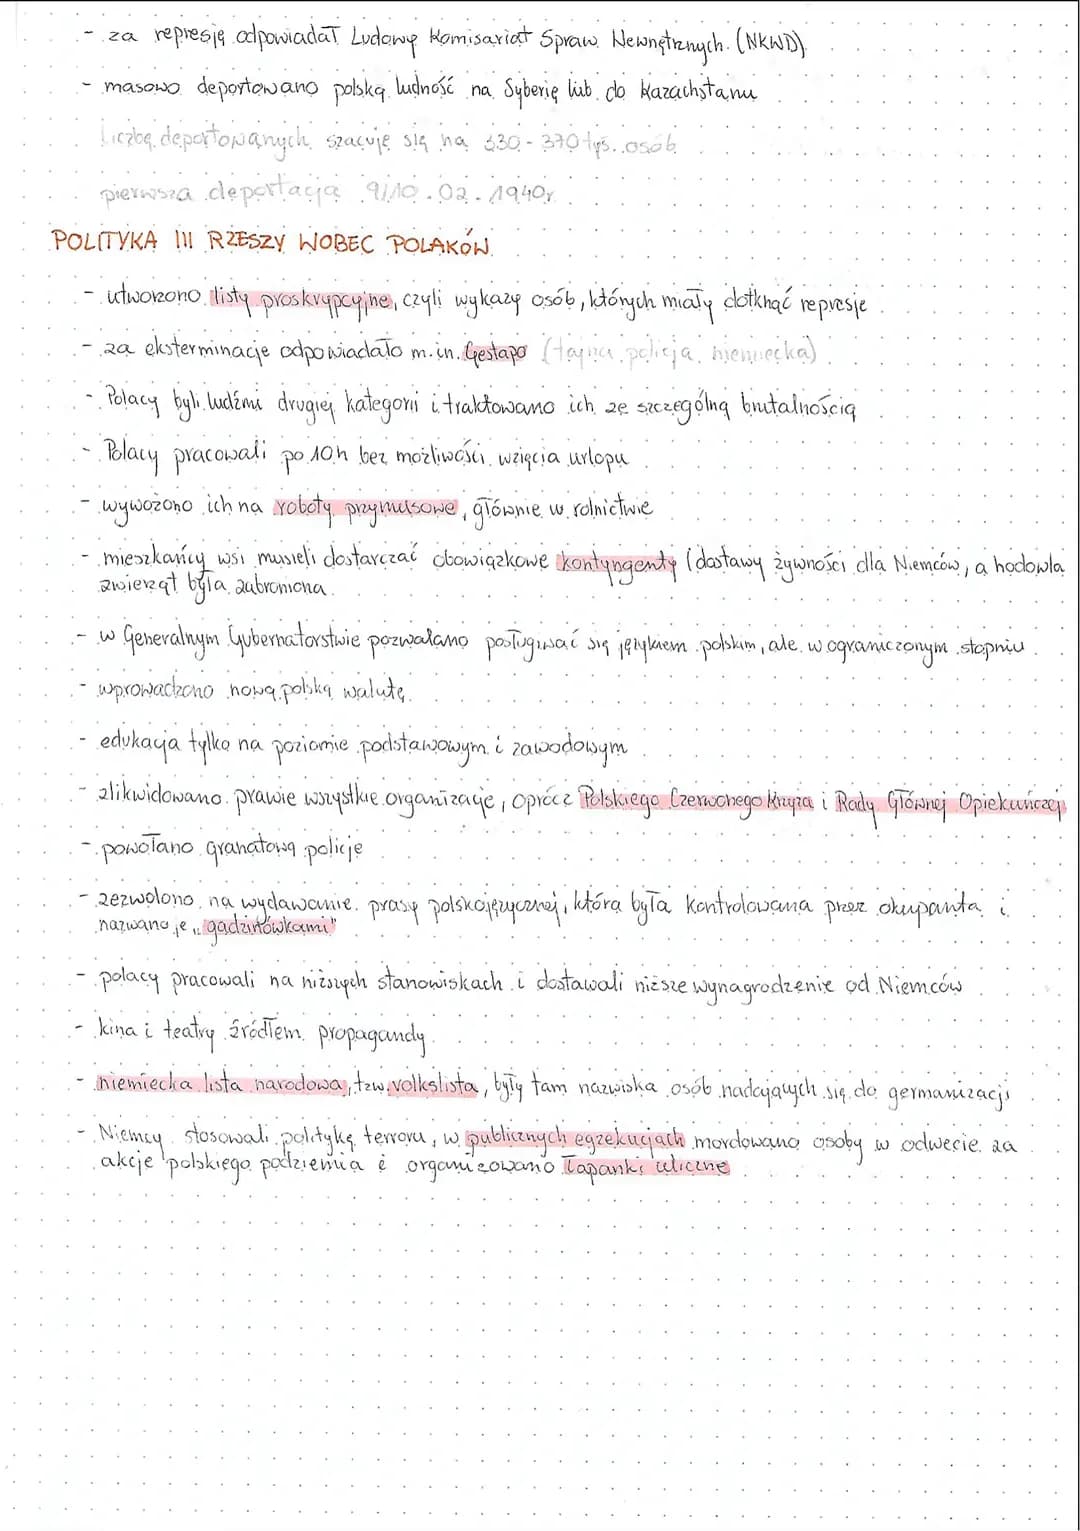 - za represję odpowiadał Ludowy Komisariat Spraw Wewnętrznych (NKWD)
- masowo deportowano polską ludność na Syberię lub do Kazachstanu
Liczbę deportowanych szacuje się na 330-370 tyś. osób
pierwsza deportacja 9/10.02.1940r
POLITYKA III RZESZY WOBEC POLAKÓW
- utworzono listy proskrypcyjne, czyli wykazy osób, których miały dotknąć represje
- za eksterminacje odpowiadało m.in. Gestapo (tajna policja niemiecka)
- Polacy byli ludźmi drugiej kategorii i traktowano ich ze szczególną brutalnością
- Polacy pracowali po 10h bez możliwości wzięcia urlopu
- wywożono ich na roboty przymusowe, głównie w rolnictwie
- mieszkańcy wsi musieli dostarczać obowiązkowe kontyngenty (dostawy żywności dla Niemców, a hodowla
zwierząt była zabroniona.
- w Generalnym Gubernatorstwie pozwalano posługiwać się językiem polskim, ale w ograniczonym stopniu.
- wprowadzono nową polską walutę.
- edukacja tylko na poziomie podstawowym i zawodowym
- zlikwidowano prawie wszystkie organizacje, oprócz Polskiego Czerwonego Krzyża i Rady Głównej Opiekuńczej
- powołano granatową policje
- zezwolono na wydawanie prasy polskojęzycznej, która była kontrolowana przez okupanta i
nazwano je „gadzinówkami"
- polacy pracowali na niższych stanowiskach i dostawali niższe wynagrodzenie od Niemców
- kina i teatry źródłem propagandy
- niemiecka lista narodowa, tzw. volkslista, były tam nazwiska osób nadających się do germanizacji
- Niemcy stosowali politykę terroru, w publicznych egzekucjach mordowano osoby w odwecie za
akcje polskiego podziemia i organizowano łapanki uliczne